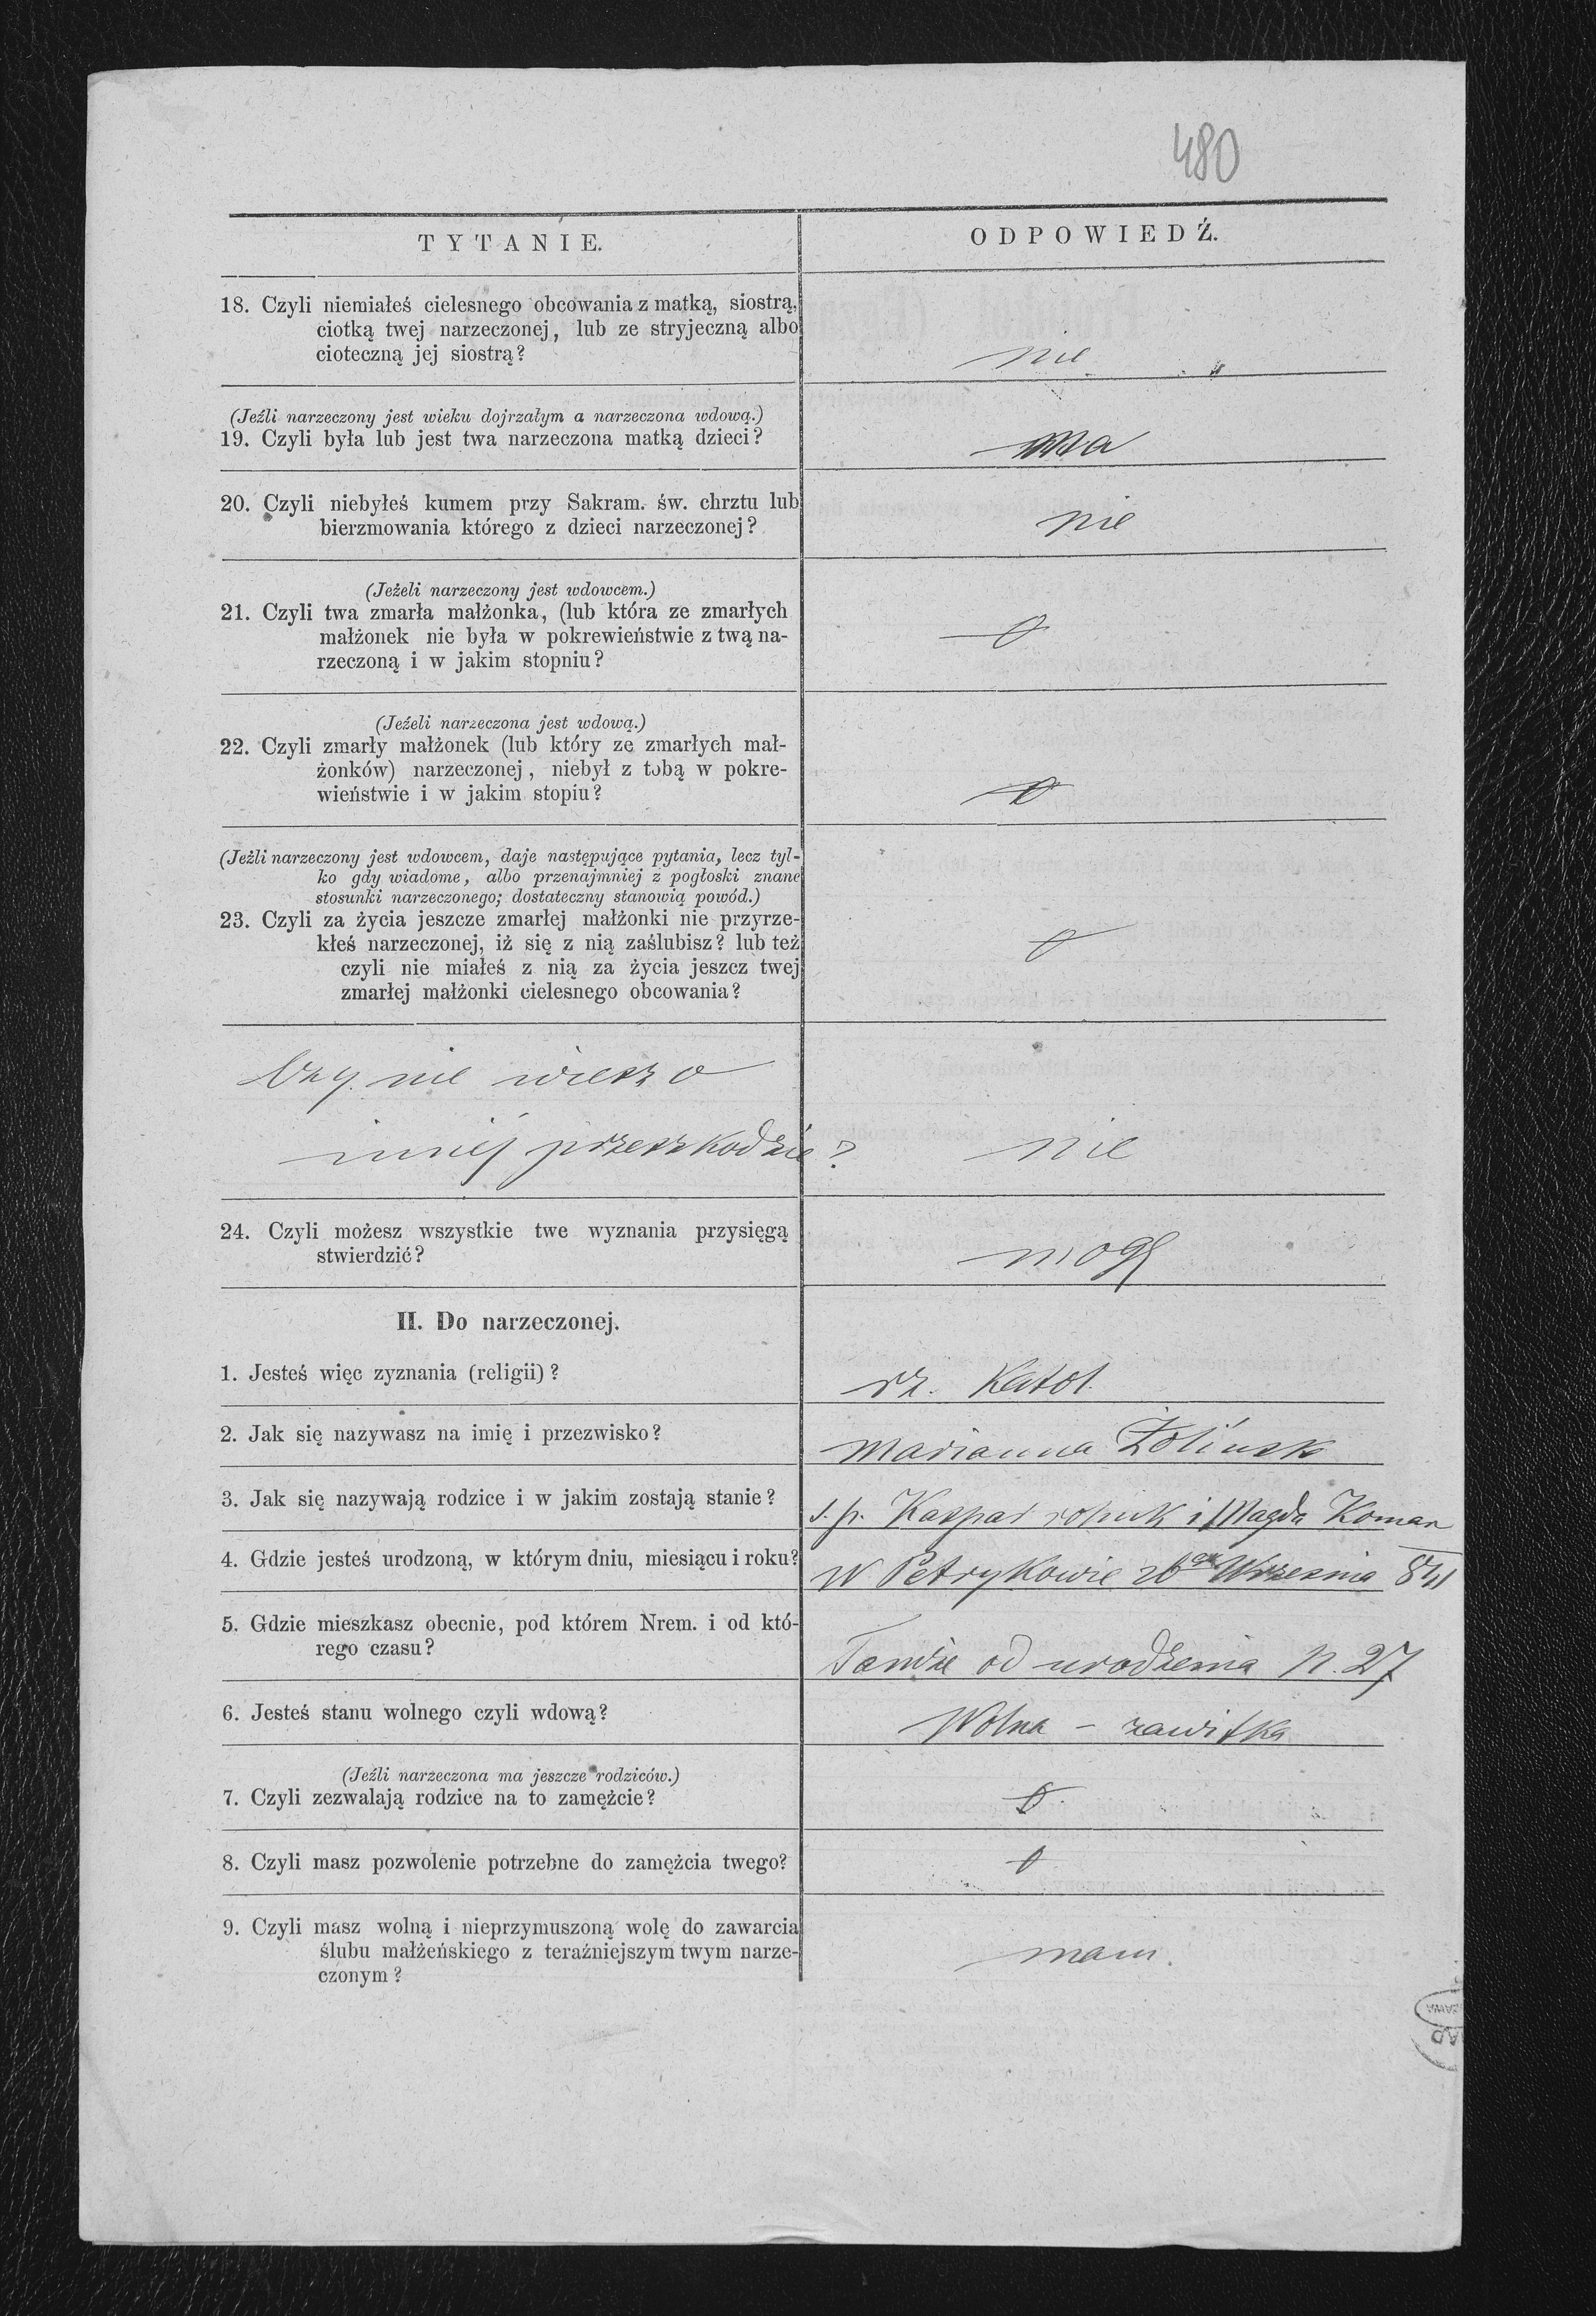 480
TYTANIE.
ODPOWIEDŹ.
18. Czyli niemiałeś cielesnego obcowania z matką, siostrą,
ciotką twej narzeczonej, lub ze stryjeczną albo
cioteczną jej siostrą?
nie
(Jeźli narzeczony jest wieku dojrzałym a narzeczona wdową.)
19. Czyli była lub jest twa narzeczona matką dzieci?
ma
20. Czyli niebyłeś kumem przy Sakram. św. chrztu lub
bierzmowania którego z dzieci narzeczonej?
nie
(Jeżeli narzeczony jest wdowcem.)
21. Czyli twa zmarła małżonka, (lub która ze zmarłych
małżonek nie była w pokrewieństwie z twą na-
rzeczoną i w jakim stopniu?
(Jeżeli narzeczona jest wdową.)
22. Czyli zmarły małżonek (lub który ze zmarłych mał-
żonków) narzeczonej, niebył z tobą w pokre-
wieństwie i w jakim stopiu?
(Jeżli narzeczony jest wdowcem, daje następujące pytania, lecz tyl-
ko gdy wiadome, albo przenajmniej z pogłoski znane
stosunki narzeczonego; dostateczny stanowią powód.)
23. Czyli za życia jeszcze zmarłej małżonki nie przyrze-
kłeś narzeczonej, iż się z nią zaślubisz? lub też
czyli nie miałeś z nią za życia jeszcz twej
zmarłej małżonki cielesnego obcowania?
Czy nie wiesz o
innéj przeszkodzie?
nie
24. Czyli możesz wszystkie twe wyznania przysięgą
stwierdzić?
mogę
II. Do narzeczonej.
1. Jesteś więc zyznania (religii)?
rz. Katol.
2. Jak się nazywasz na imię i przezwisko?
Marianna Żolińsk
3. Jak się nazywają rodzice i w jakim zostają stanie?
ś. p. Kaspar rolnik i Magda Koman
4. Gdzie jesteś urodzoną, w którym dniu, miesiącu i roku?
w Petrykowie 26 Września 841
5. Gdzie mieszkasz obecnie, pod którem Nrem. i od któ-
rego czasu?
Tamże od urodzenia N. 27
6. Jesteś stanu wolnego czyli wdową?
Wolna - zawitka
(Jeźli narzeczona ma jeszcze rodziców.)
7. Czyli zezwalają rodzice na to zamężcie?
8. Czyli masz pozwolenie potrzebne do zamężcia twego?
9. Czyli masz wolną i nieprzymuszoną wolę do zawarcia
ślubu małżeńskiego z teraźniejszym twym narze-
czonym?
mam.